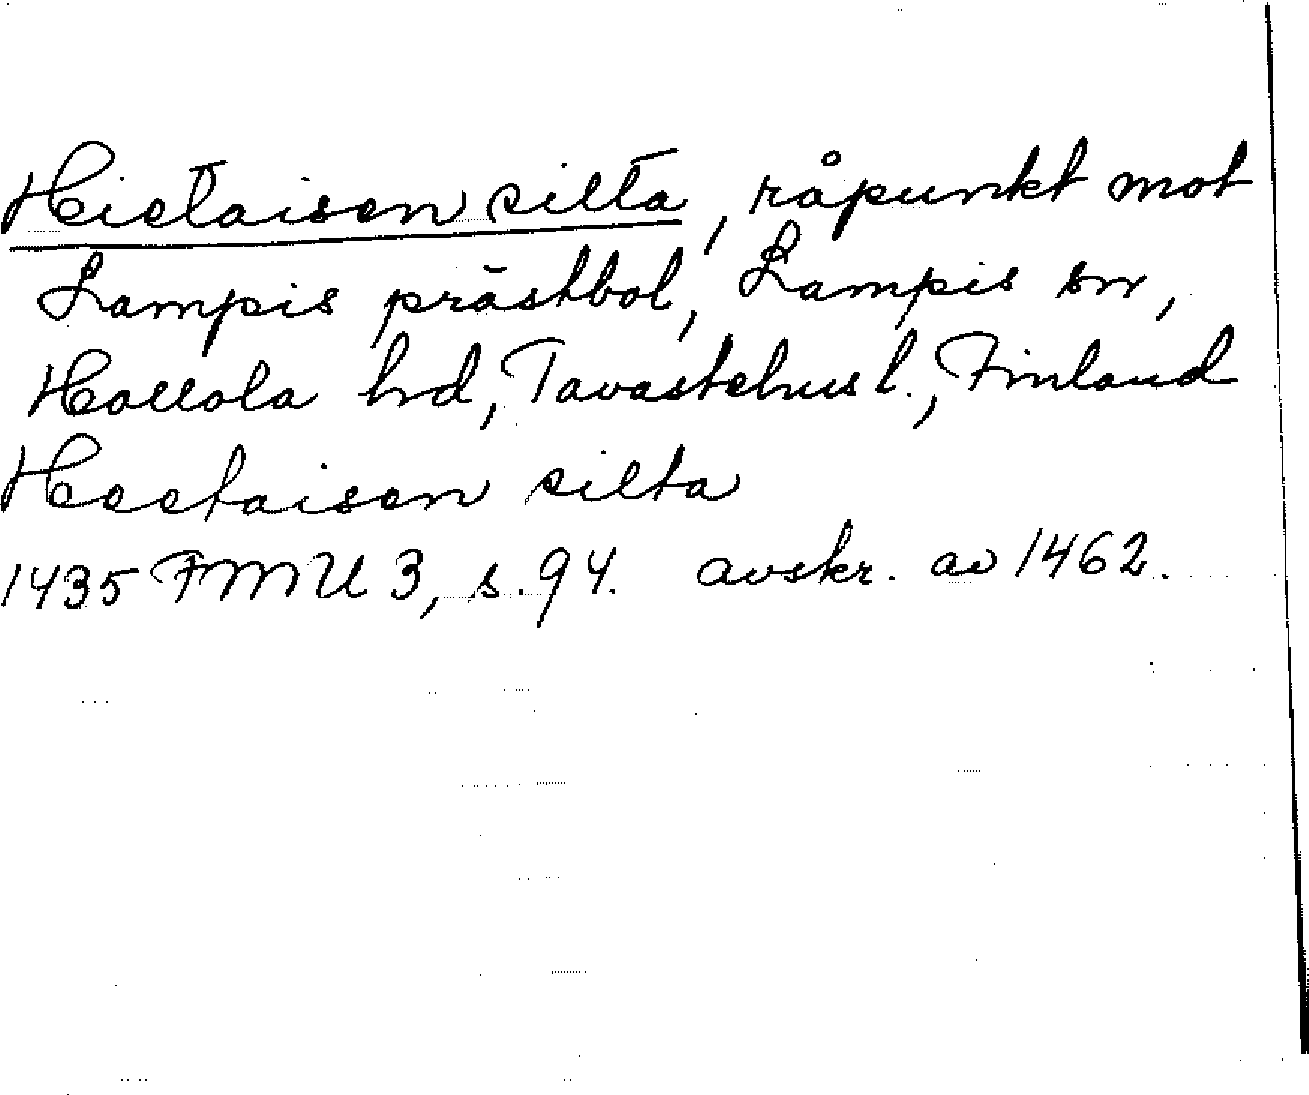 Hietaisen silta, råpunkt mot
Lampis prästbol, Lampis sn,
Hollola hd, Tavastehus l., Finland
Heetaisen silta
1435 FMU 3, s. 94. avskr. av 1462.